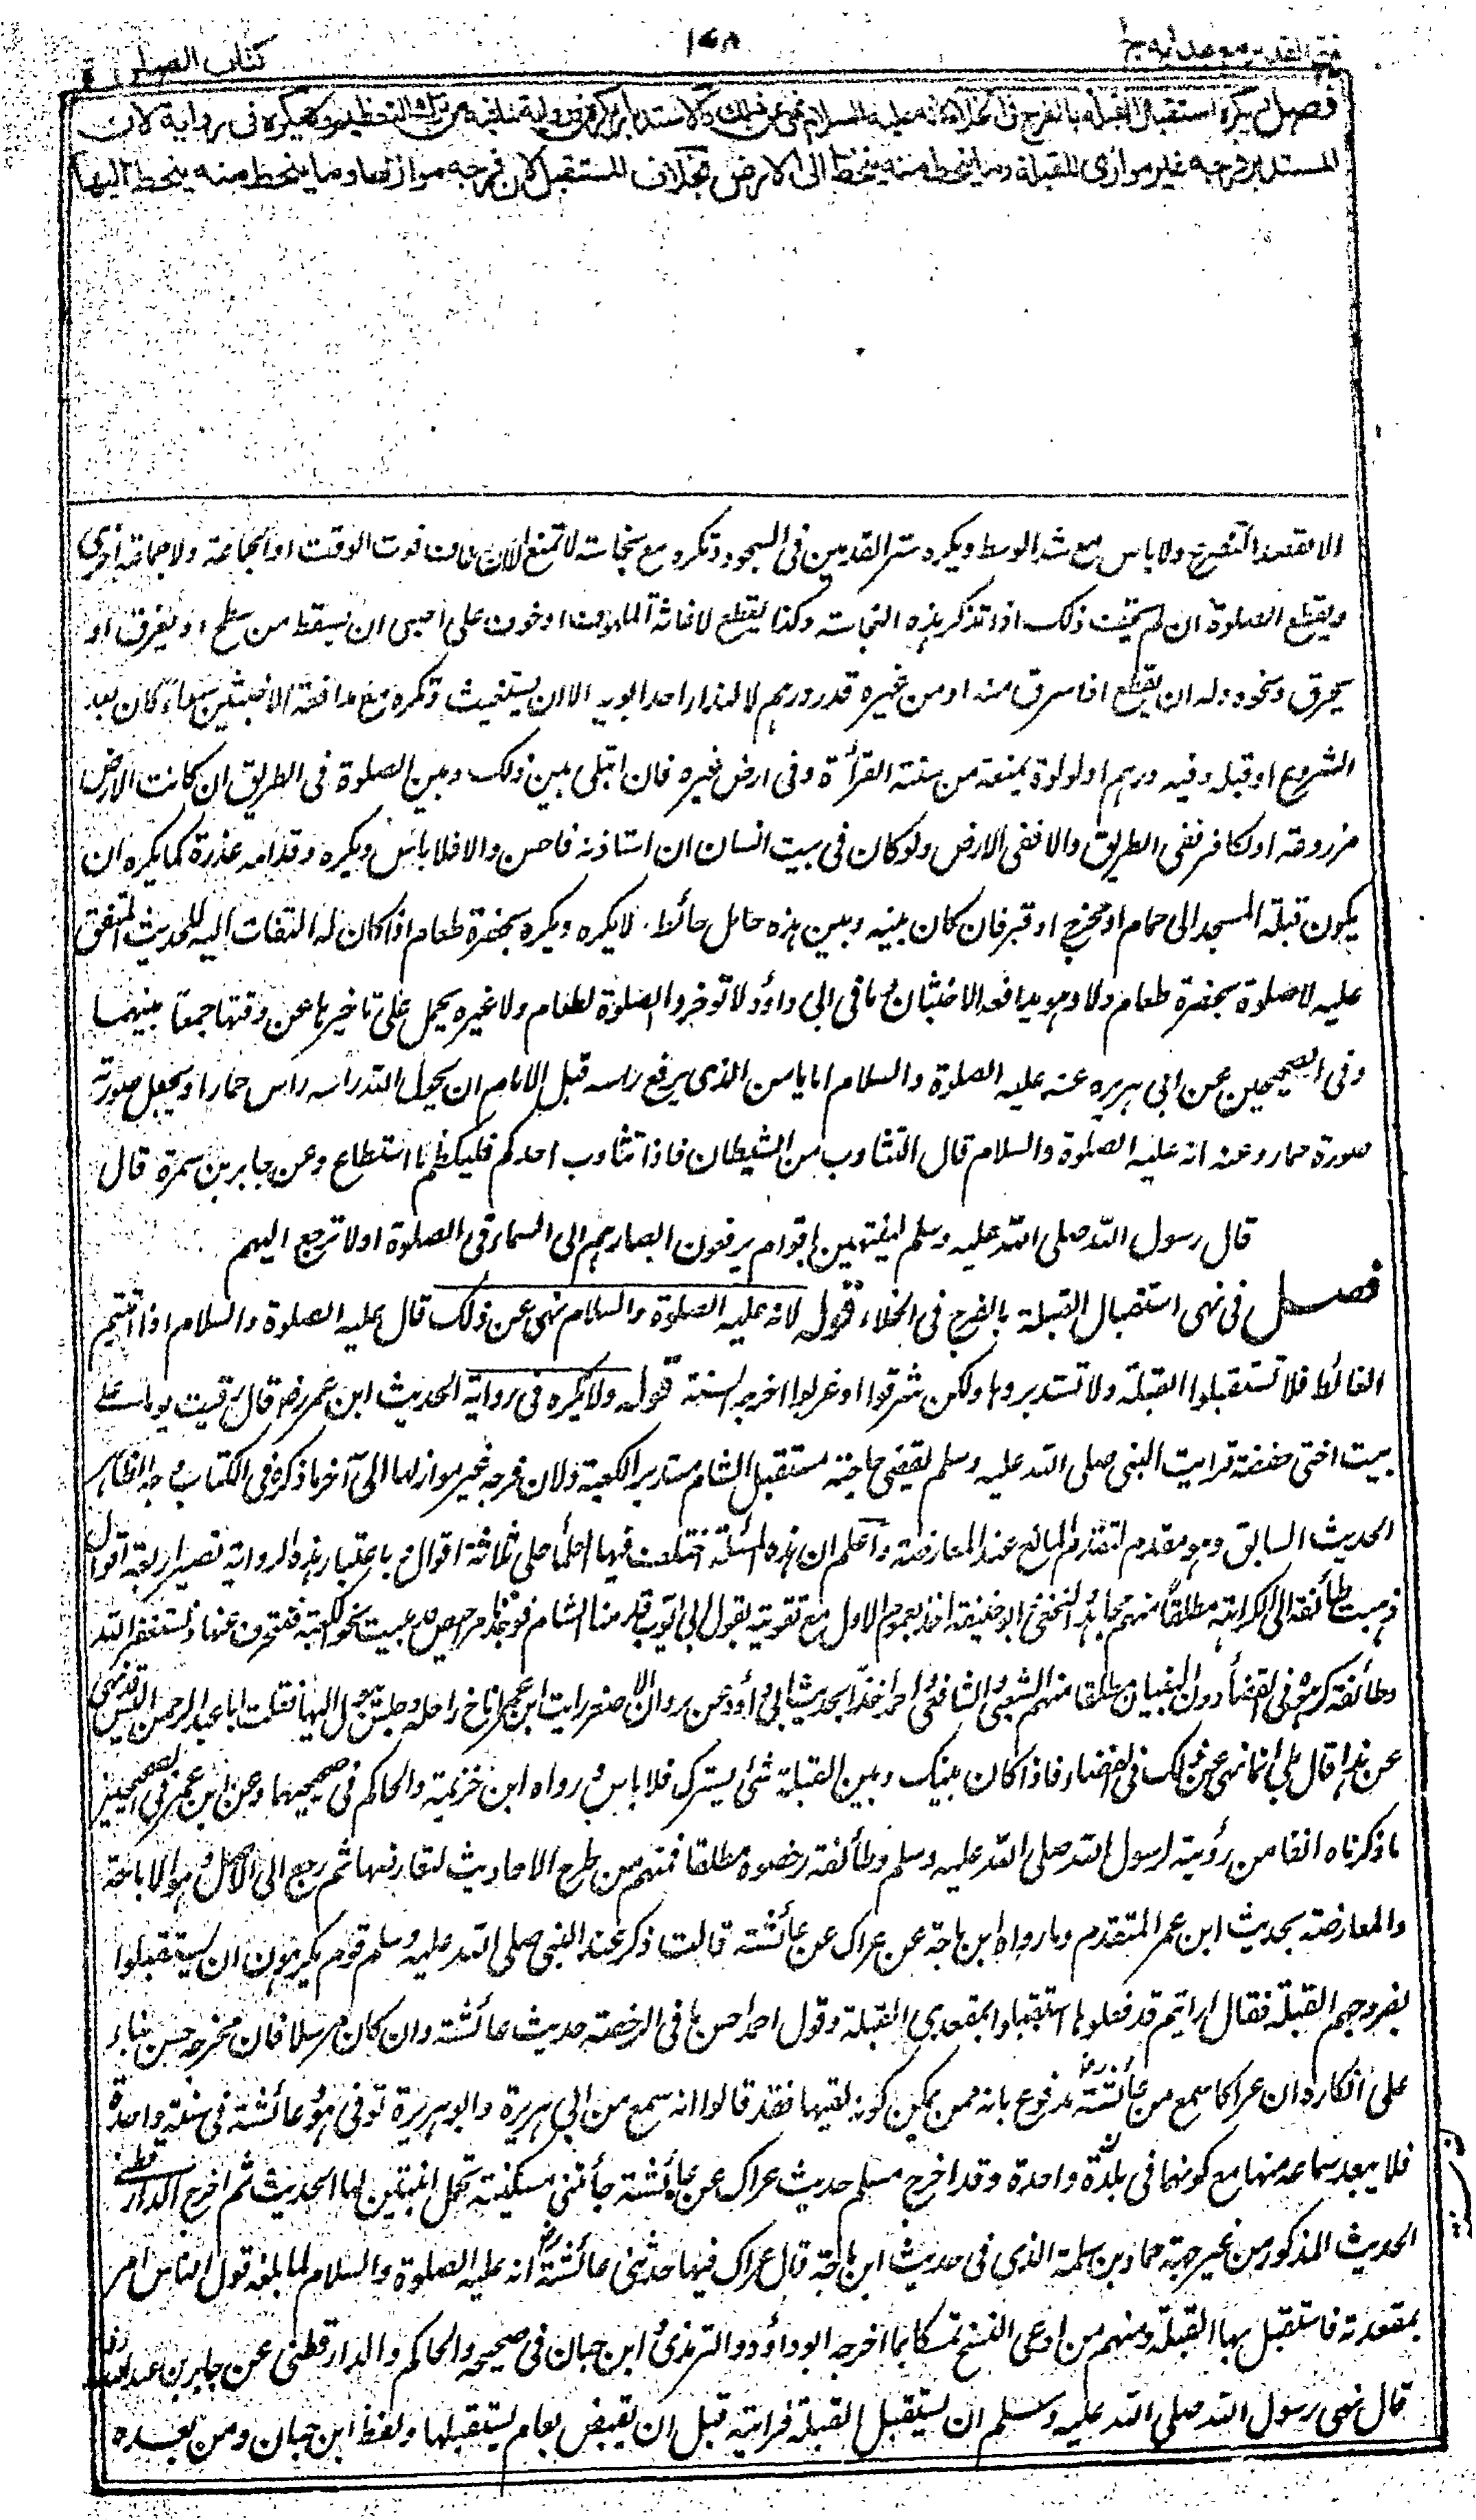 فتح القدير مع هدايه ج ١
١٤٨
كتاب الصلوة
فصل يكره استقبال القبلة بالفرج في الخلاء لانه عليه السلام نهى عن ذلك والاستدبار يكره في رواية لما فيه من ترك التعظيم ولا يكره في رواية لان
المستدبر فرجه غير موازى للقبلة وما ينحط منه ينحط الى الارض بخلاف المستقبل لان فرجه موازلها وما ينحط منه ينحط اليها
الا لقصد التضرع ولا باس مع شد الوسط ويكره ستر القدمين فى السجود وتكره مع نجاسة لا تمنع الا ان خاف فوت الوقت او الجماعة ولا جماعة اخرى
ويقطع الصلوة ان لم يخف ذلك اذا تذكر هذه النجاسة وكذا يقطع لاغاثة الملهوف او خوف على اعمى ان يسقط من سطح او يغرق او
يحرق ونحوه وله ان يقطع اذا سرق منه او من غيره قدر درهم لا لنداء احد ابويه الا ان يستغيث وتكره مع مدافعة الاخبثين سواء كان بعد
الشروع او قبله وفيه درهم او لؤلؤة يمنعه من سنة القرأة وفى ارض غيره فان ابتلى بين ذلك وبين الصلوة فى الطريق ان كانت الارض
مزروعة او لكافر ففى الطريق والا ففى الارض ولو كان فى بيت انسان ان استاذنه فاحسن والا فلا باس ويكره وقدامه عذرة كما يكره ان
يكون قبلة المسجد الى حمام او مخرج او قبر فان كان بينه وبين هذه حائل حائط لا يكره ويكره بحضرة طعام اذا كان له التفات اليه للحديث المتفق
عليه لا صلوة بحضرة طعام ولا وهو يدافعه الاخبثان وما فى ابى داؤد لا تؤخروا الصلوة لطعام ولا غيره يحمل على تاخيرها عن وقتها جمعا بينهما
وفى الصحيحين عن ابى هريره عنه عليه الصلوة والسلام اما يامن الذى يرفع راسه قبل الامام ان يحول الله راسه راس حمار او يجعل صورته
صورة حمار وعنه انه عليه الصلوة والسلام قال التثاوب من الشيطان فاذا تثاوب احدكم فليكظم ما استطاع وعن جابر بن سمرة قال
قال رسول الله صلى الله عليه وسلم لينتهين اقوام يرفعون ابصارهم الى السماء فى الصلوة او لا ترجع اليهم
فصل فى نهى استقبال القبلة بالفرج فى الخلاء قوله لانه عليه الصلوة والسلام نهى عن ذلك قال عليه الصلوة والسلام اذا اتيتم
الغائط فلا تستقبلوا القبلة ولا تستدبروها ولكن شرقوا او غربوا اخرجه الستة قوله ولا يكره فى رواية لحديث ابن عمر رض قال رقيت يوما على
بيت اختى حفصة فرايت النبى صلى الله عليه وسلم لقضى حاجته مستقبل الشام مستدبر الكعبة ولان فرجه غير موازلها الى آخر ما ذكره فى الكتاب وجه الظاهر
الحديث السابق وهو مقدم لتقدم المانع عند المعارضة واعلم ان هذه المسئلة اختلف فيها العلماء على ثلاثة اقوال وباعتبار هذه الرواية تصير اربعة اقوال
ذهبت طائفة الى الكراهة مطلقا منهم مجاهد والنخعى وابو حنيفة اخذ بعموم الاول مع تقويته بقول ابى ايوب قدمنا الشام فوجدنا مراحيض قد بنيت نحو الكعبة فننحرف عنها ونستغفر الله
وطائفة كرهوه فى الفضاء دون البنيان مطلقا منهم الشعبى والشافعى واحمد اخذا بحديث ابى داؤد عن مروان الاصفر رايت ابن عمر اناخ راحلته وجلس يبول اليها فقلت ابا عبد الرحمن اليس قد نهى
عن هذا قال بلى انما نهى عن ذلك فى الفضاء فاذا كان بينك وبين القبلة شئ يسترك فلا باس ورواه ابن خزيمة والحاكم فى صحيحيهما وعن ابن عمر فى الصحيحين
ما ذكرناه انفا من رؤيته لرسول الله صلى الله عليه وسلم وطائفة رخصوه مطلقا فمنهم من طرح الاحاديث لتعارضها ثم رجع الى الاصل وهو الاباحة
والمعارضة بحديث ابن عمر المتقدم وما رواه ابن ماجة عن عراك عن عائشة قالت ذكر عند النبى صلى الله عليه وسلم قوم يكرهون ان يستقبلوا
بفروجهم القبلة فقال اراتيم قد فعلوها استقبلوا بمقعدى القبلة وقول احمد احسن ما فى الرخصة حديث عائشة وان كان مرسلا فان مخرجه حسن بناء
على انكاره ان عراكا سمع من عائشة رض مدفوع بانه ممن يمكن كونه لقيها فقد قالوا انه سمع من ابى هريرة وابو هريرة توفى هو وعائشة فى سنة واحدة
فلا يبعد سماعه منها مع كونهما فى بلدة واحدة وقد اخرج مسلم حديث عراك عن عائشة جأتنى مسكينة تحمل ابنتين لها الحديث ثم اخرج الدارقطنى
الحديث المذكور من غير جهة حماد بن سلمة الذى فى حديث ابن ماجة قال عراك فيها حدثتنى عائشة رض انه عليه الصلوة والسلام لما بلغه قول الناس امر
بمقعدته فاستقبل بها القبلة ومنهم من ادعى النسخ تمسكا بما اخرجه ابو داؤد والترمذى وابن حبان فى صحيحه والحاكم والدارقطنى عن جابر بن عبد الله رض
قال نهى رسول الله صلى الله عليه وسلم ان يستقبل القبلة فرايته قبل ان يقبض بعام يستقبلها ولفظ ابن حبان ومن بعده